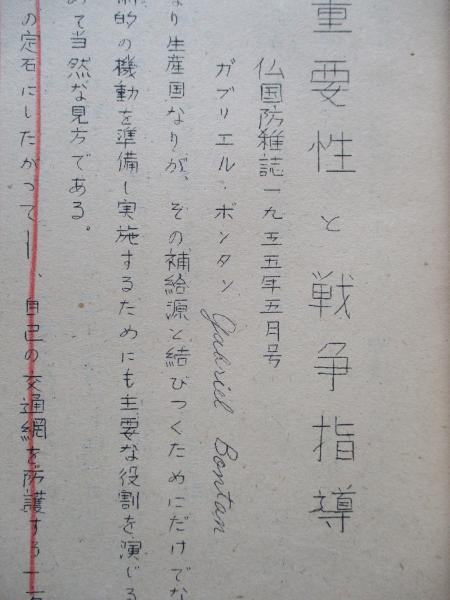 重要性と戦争指導
仏国防雑誌一九五五年五月号
ガブリエル・ボンタン Gabriel Bontan
なり生産国なりが、その補給源と結びつくためにだけでな
的の機動を準備し実施するためにも主要な役割を演じる
めて当然な見方である。
の定石にしたがつて—、自己の交通網を防護する一方